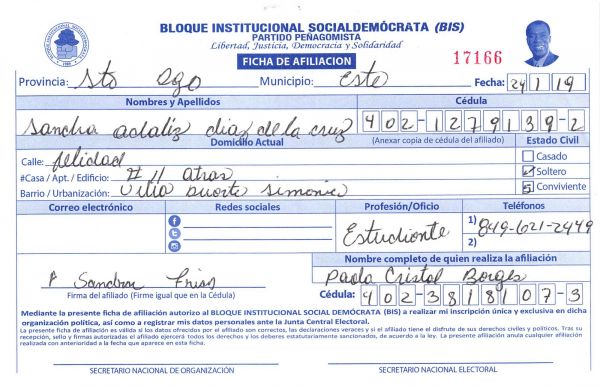 BLOQUE INSTITUCIONAL SOCIALDEMÓCRATA (BIS)
PARTIDO PEÑAGOMISTA
Libertad, Justicia, Democracia y Solidaridad
FICHA DE AFILIACION
17166
Provincia: Sto Dgo Municipio: Este Fecha: 24 1 19
Nombres y Apellidos Cédula
Sandra adaliz diaz de la cruz 402-1279139-2
Domicilio Actual (Anexar copia de cédula del afiliado) Estado Civil
Calle: felicidad Casado
#Casa / Apt. / Edificio: # 11 atras Soltero
Barrio / Urbanización: Villa duarte Conviviente
Correo electrónico Redes sociales Profesión/Oficio Teléfonos
Estudiante 1) 849-621-2449
2)
Nombre completo de quien realiza la afiliación
Sandra Paola Cristal Borges
Firma del afiliado (Firme igual que en la Cédula) Cédula: 402-3818107-3
Mediante la presente ficha de afiliación autorizo al BLOQUE INSTITUCIONAL SOCIAL DEMÓCRATA (BIS) a realizar mi inscripción única y exclusiva en dicha
organización política, así como a registrar mis datos personales ante la Junta Central Electoral.
La presente ficha de afiliación es válida si los datos ofrecidos por el afiliado son correctos, las declaraciones veraces y si el afiliado tiene el disfrute de sus derechos civiles y políticos. Tras su
recepción, sello y firmas autorizadas el afiliado ejercerá todos los derechos y los deberes estatutariamente sancionados, de acuerdo a la ley. La presente afiliación anula cualquier afiliación
realizada con anterioridad a la fecha que aparece en esta ficha.
SECRETARIO NACIONAL DE ORGANIZACIÓN SECRETARIO NACIONAL ELECTORAL